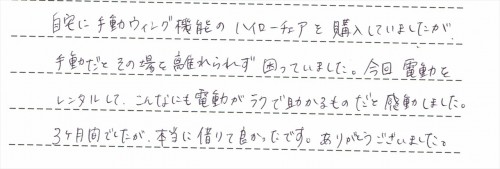 自宅に手動ウィング機能のハイローチェアを購入していましたが、
手動だとその場を離れられず困っていました。今回電動を
レンタルして、こんなにも電動がラクで助かるものだと感動しました。
3ヶ月間でしたが、本当に借りて良かったです。ありがとうございました。